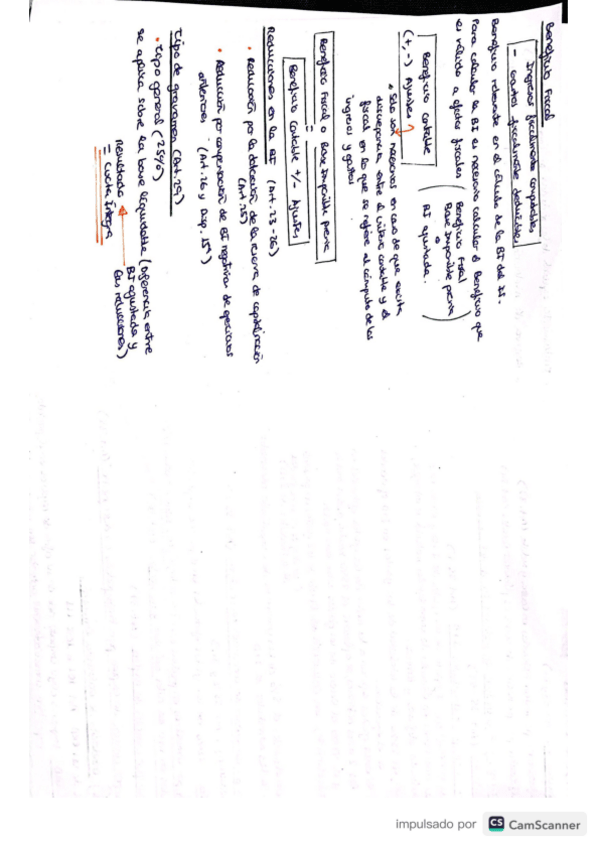 Beneficio Fiscal
Ingresos fiscalmente computables
- Gastos fiscalmente deducibles
Beneficio relevante en el cálculo de la BI del IS.
Para calcular la BI es necesario calcular el Beneficio que
es válido a efectos fiscales (Beneficio Fiscal
o
Base Imponible previa)
Beneficio contable
BI ajustada.
(+, -) Ajustes
* Solo son necesarios en caso de que exista
discrepancia entre el criterio contable y el
fiscal en lo que se refiere al cómputo de los
ingresos y gastos
Beneficio Fiscal o Base Imponible previa
=
Beneficio Contable +/- Ajustes
Reducciones en la BI (Art. 23-26)
• Reducción por la dotación de la reserva de capitalización
(Art. 25)
• Reducción por compensación de BI negativas de ejercicios
anteriores (Art. 26 y Disp. 15ª)
Tipo de gravamen (Art. 29)
• tipo general (25%)
se aplica sobre la base liquidable (Diferencia entre
BI ajustada y
las reducciones)
Resultado
= Cuota Íntegra
impulsado por CS CamScanner